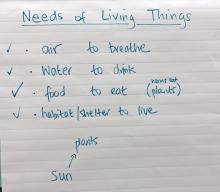 Needs of Living Things
✓ · air to breathe
✓ · Water to drink
✓ · food to eat (plants)
✓ · habitat/shelter to live
plants
Sun